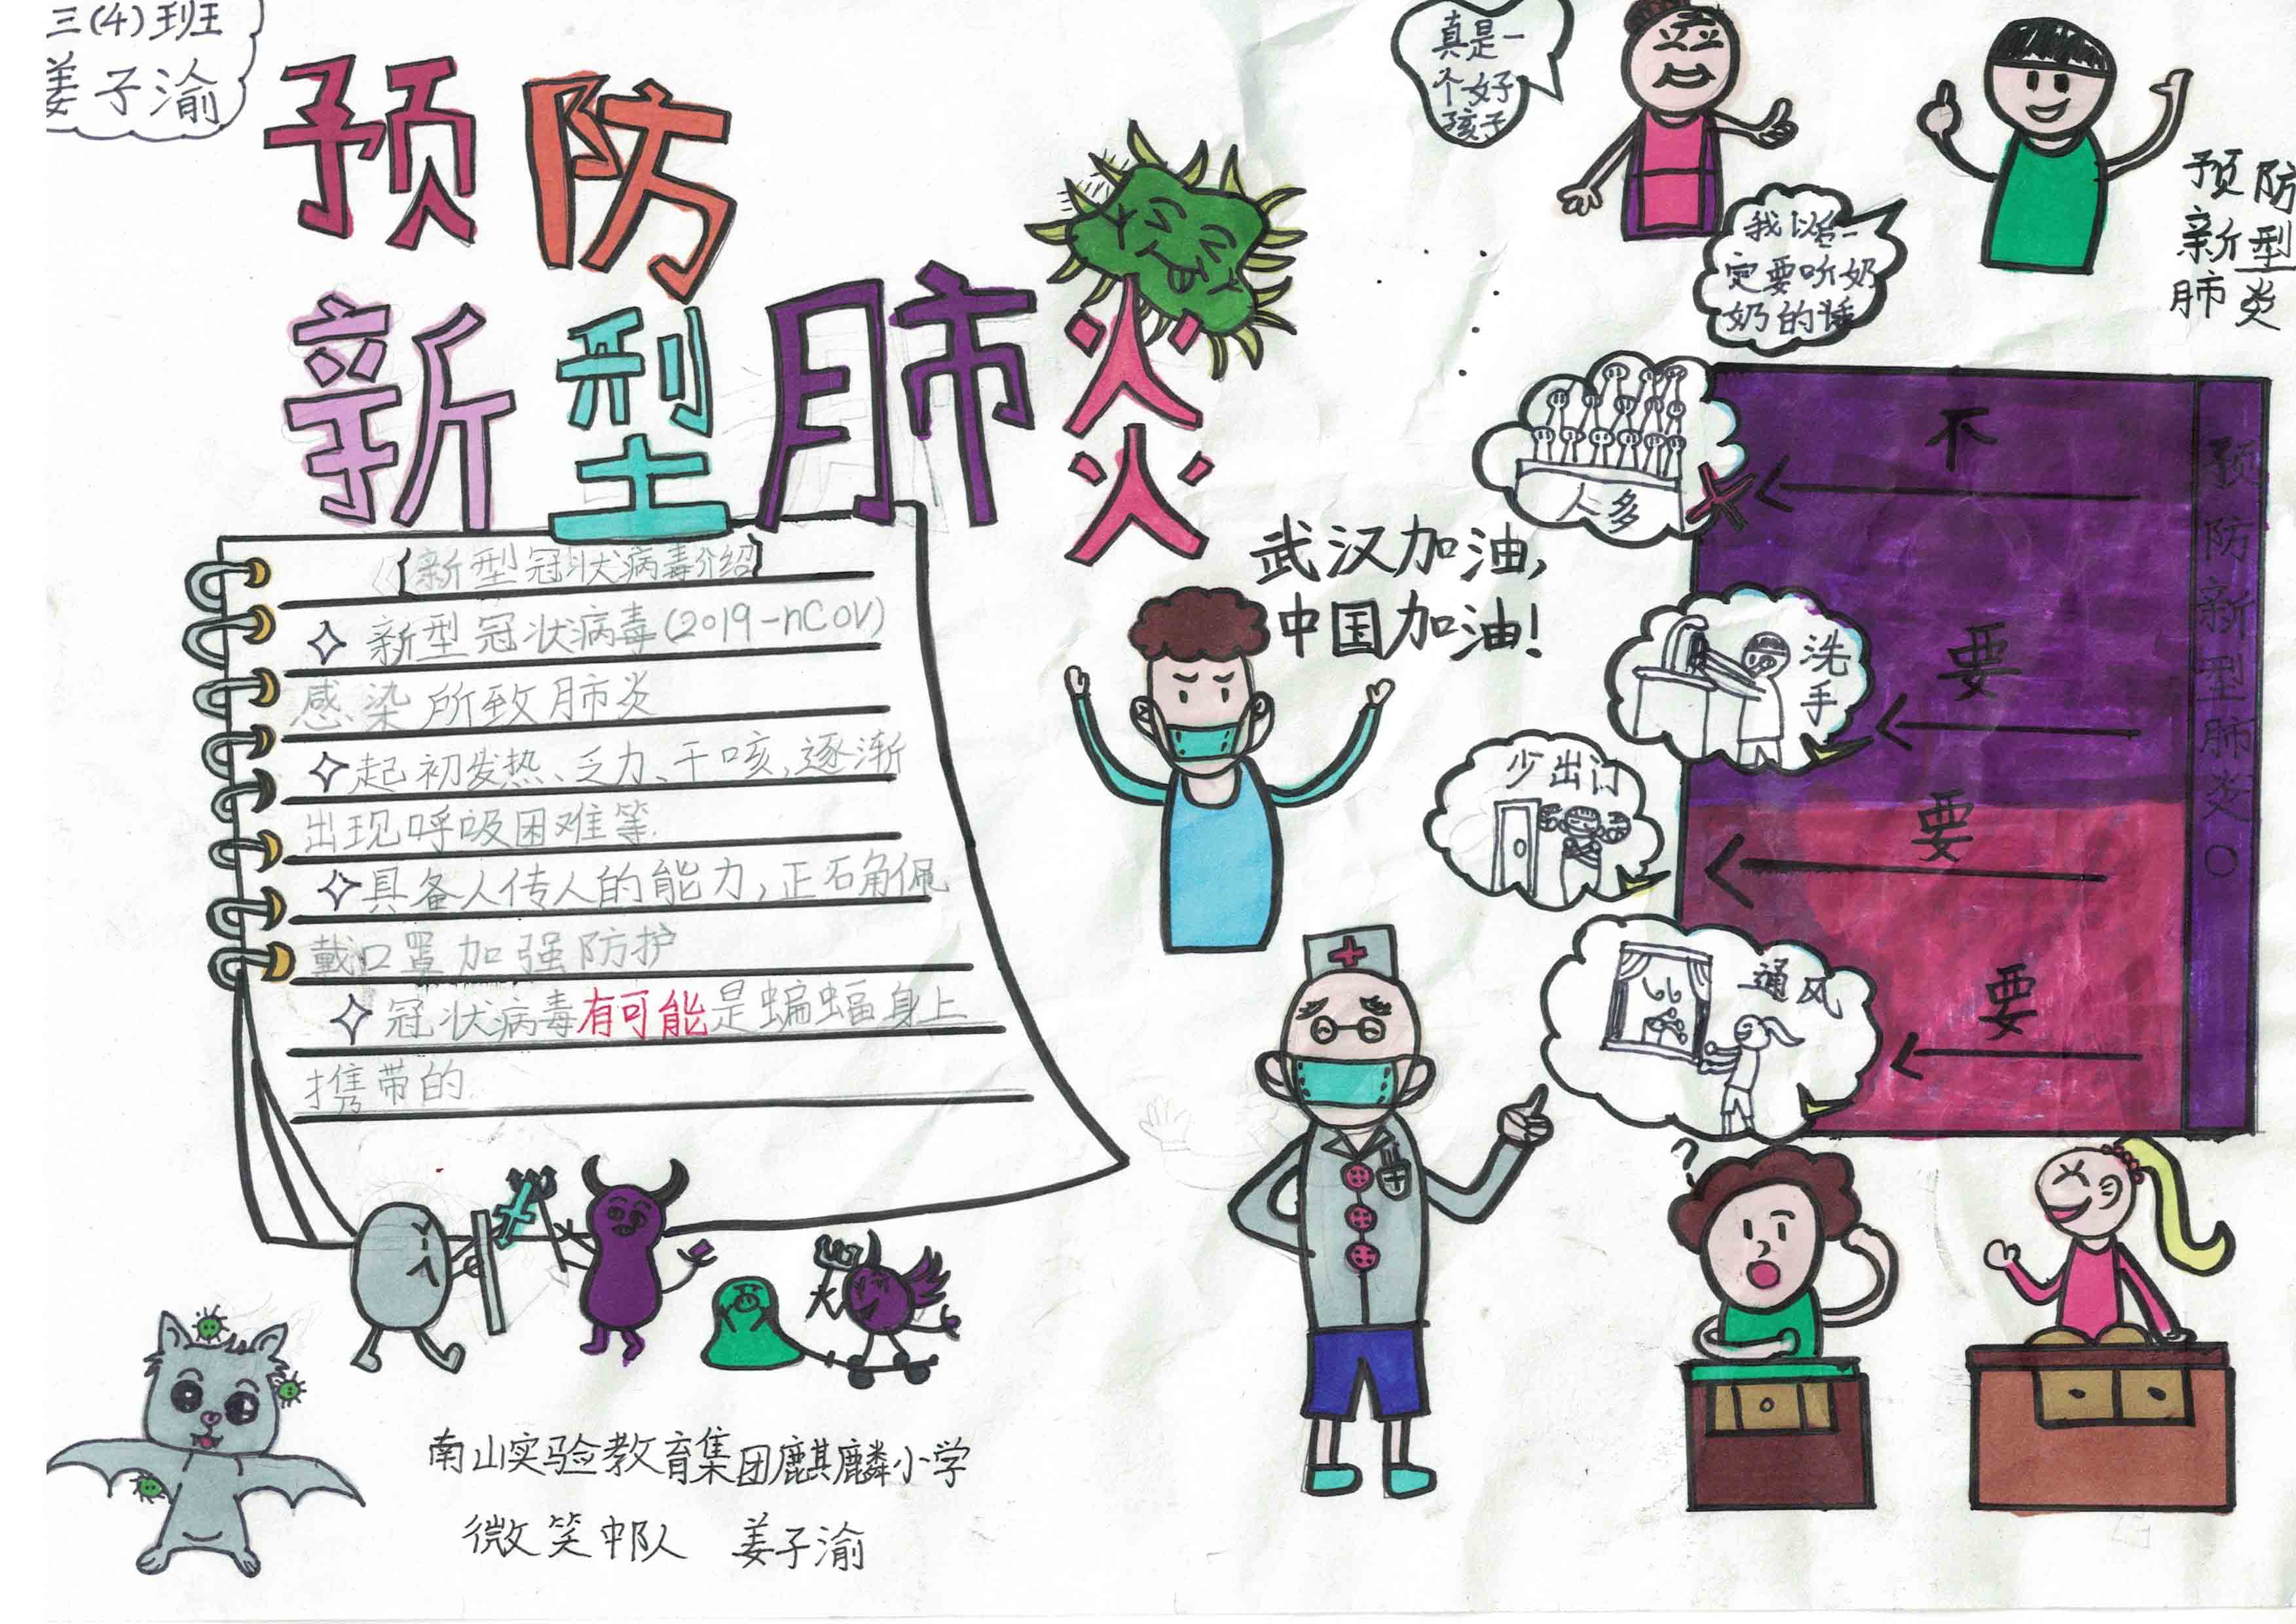 三(4)班
姜子渝
预防
新型肺炎
新型冠状病毒介绍
新型冠状病毒(2019-nCoV)
感染所致肺炎
起初发热、乏力、干咳,逐渐
出现呼吸困难等.
具备人传人的能力,正确佩
戴口罩加强防护
冠状病毒有可能是蝙蝠身上
携带的.
南山实验教育集团麒麟小学
微笑中队 姜子渝
武汉加油,
中国加油!
真是一
个好
孩子
我以后一
定要听奶
奶的话
预防
新型
肺炎
不
人多
要
洗手
要
少出门
要
通风
预防新型肺炎。
?